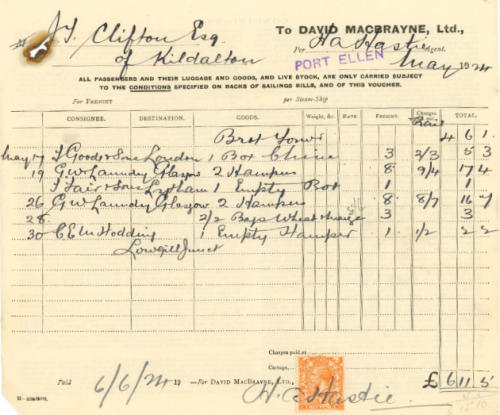 J. T. Clifton Esq
of Kildalton
To DAVID MACBRAYNE, Ltd.,
Per H. A. Hastie Agent.
PORT ELLEN
May 1924
ALL PASSENGERS AND THEIR LUGGAGE AND GOODS, AND LIVE STOCK, ARE ONLY CARRIED SUBJECT
TO THE CONDITIONS SPECIFIED ON BACKS OF SAILINGS BILLS, AND OF THIS VOUCHER.
FOR FREIGHT per Steam-Ship
CONSIGNEE. DESTINATION. GOODS. Weight, &c. RATE. FREIGHT. Charges Paid TOTAL.
Brot Forwd 4 6 1
May 17 T Goode & Sons London 1 Box China 3 2/3 5 3
19 G.W. Laundry Glasgow 2 Hampers 8 9/4 17 4
J Fair & Sons Lytham 1 Empty Box 1 1
26 G.W. Laundry Glasgow 2 Hampers 8 8/7 16 7
28 2/2 Bags Wheat 3 3
30 C E M Hodding 1 Empty Hamper 1 1/2 2 2
Lowgill Junct
Charges paid at
Cartage,
£ 6 11 5
Paid 6/6/24 19 —For DAVID MACBRAYNE, LTD.,
H. A. Hastie